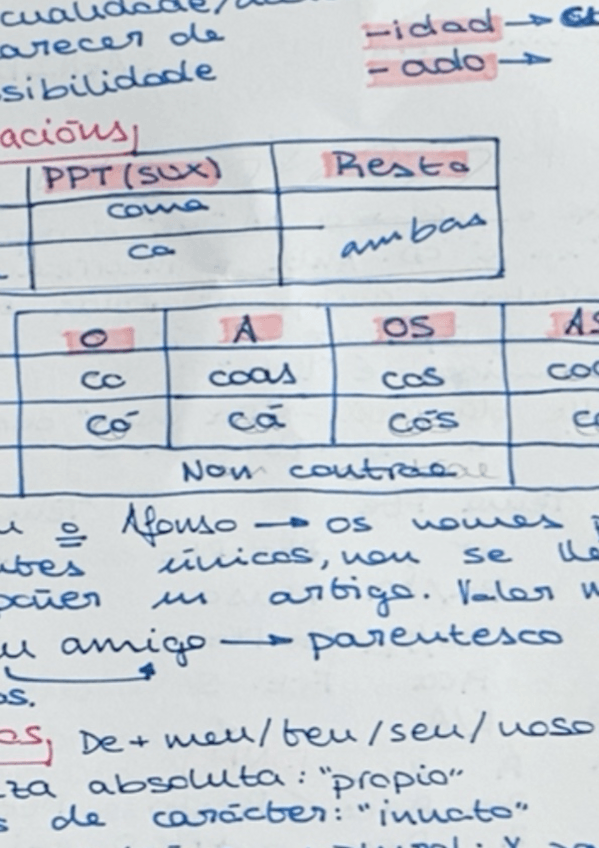 arecer de -idad →
sibilidade -ado →
acións
PPT (SUX) Resto
coma
ca ambas
O A OS AS
co coas cos
có cá cós
Non contrae
o Afonso → os nomes
únicos, non se
poñer un artigo. Valor
amigo → parentesco
os.
De + meu/teu/seu/noso
absoluta: "propio"
de carácter: "innato"